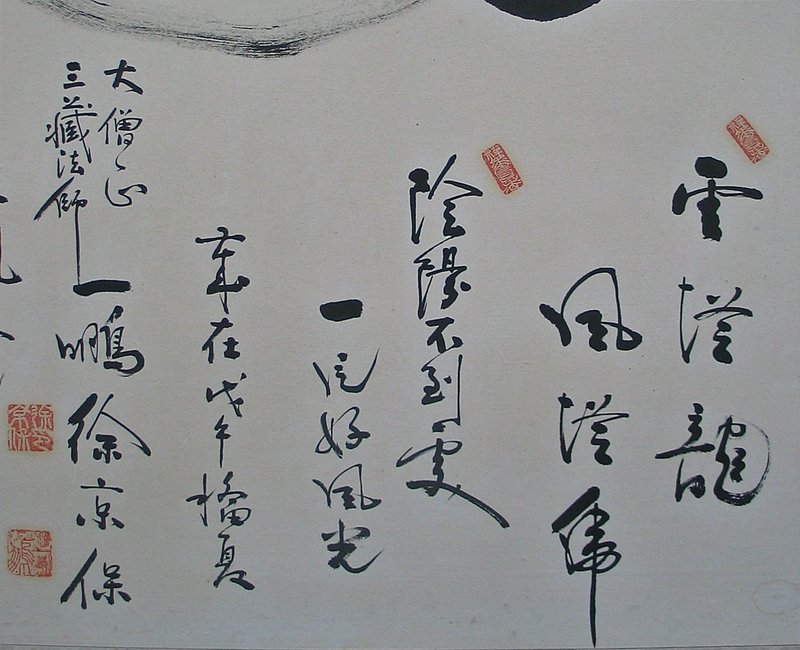 雲從龍
風從虎
陰陽不到處
一片好風光
歲在戊午榴夏
大僧正
三藏法師一鵬徐京保